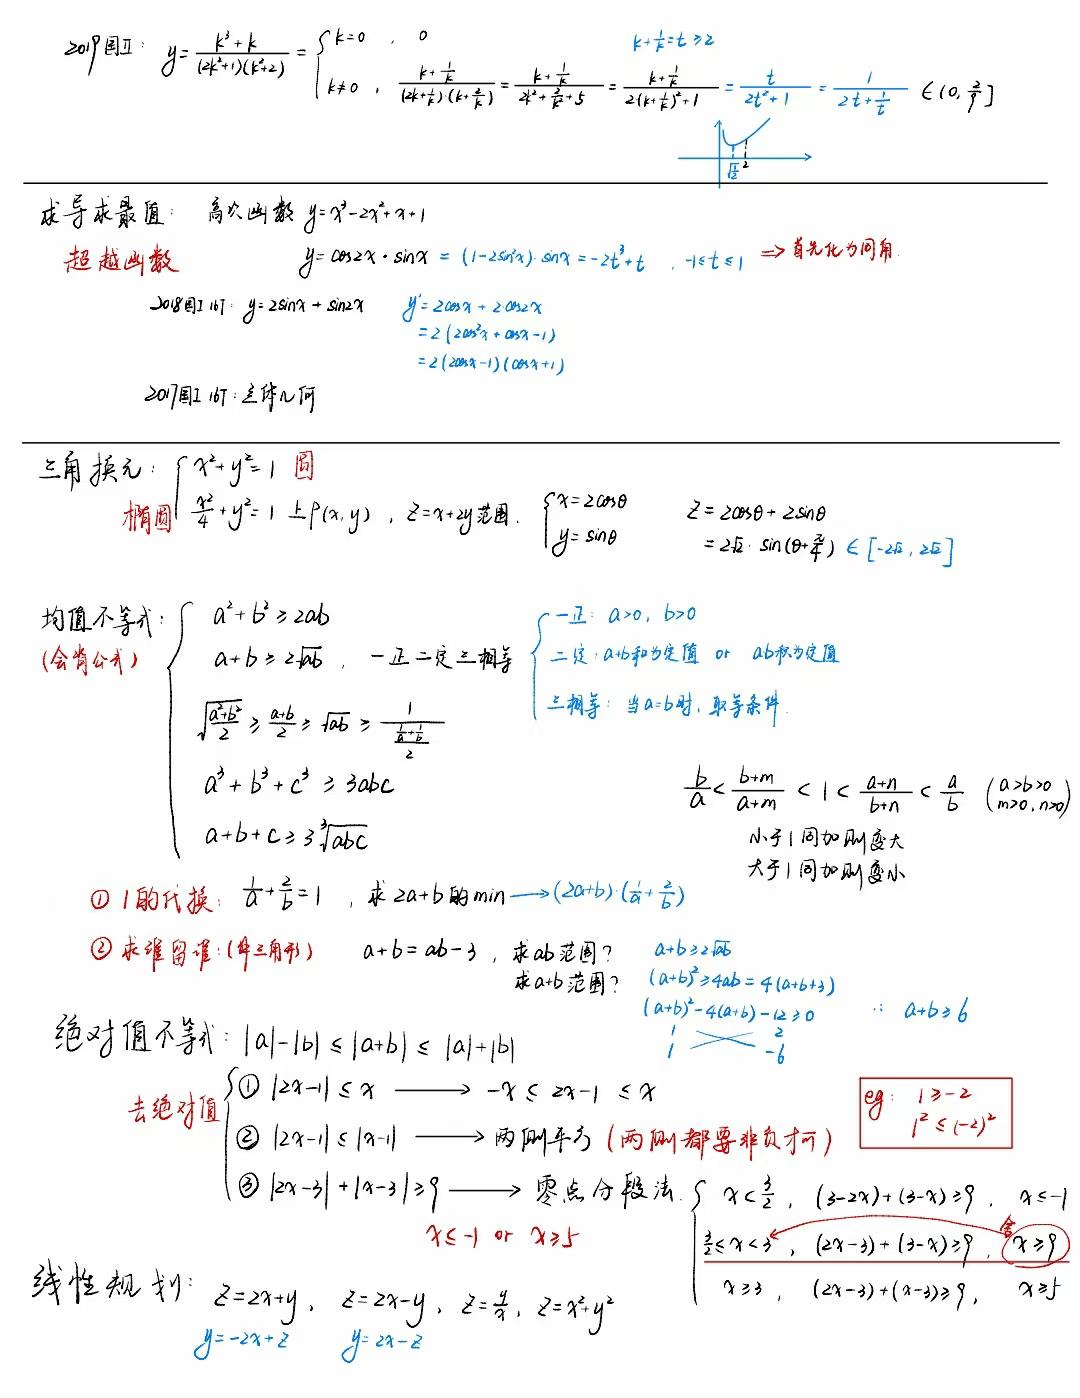 2019国Ⅱ: y = (k³+k)/((2k²+1)(k²+2)) = { k=0, 0
k≠0, (k+1/k)/((2k+1/k)·(k+2/k)) = (k+1/k)/(2k²+2/k²+5) = (k+1/k)/(2(k+1/k)²+1) = t/(2t²+1) = 1/(2t+1/t) ∈(0, 2/9]
k+1/k=t≥2
√(1/2) 2
求导求最值: 高次函数 y=x³-2x²+x+1
超越函数 y=cos2x·sinx = (1-2sin²x)·sinx = -2t³+t , -1≤t≤1 ⇒ 首先化为同角
2018国Ⅰ 16T: y=2sinx+sin2x y'=2cosx+2cos2x
=2(2cos²x+cosx-1)
=2(2cosx-1)(cosx+1)
2017国Ⅰ 16T: 立体几何
三角换元: { x²+y²=1 圆
椭圆 x²/4+y²=1 上P(x,y), Z=x+2y范围. { x=2cosθ
y=sinθ
Z=2cosθ+2sinθ
=2√2·sin(θ+π/4) ∈[-2√2, 2√2]
均值不等式: { a²+b²≥2ab
(会背公式) a+b≥2√ab , 一正二定三相等
{ 一正: a>0, b>0
二定: a+b和为定值 or ab积为定值
三相等: 当a=b时, 取等条件.
√((a²+b²)/2) ≥ (a+b)/2 ≥ √ab ≥ 1/((1/a+1/b)/2)
a³+b³+c³ ≥ 3abc
a+b+c ≥ 3∛abc
b/a < (b+m)/(a+m) < 1 < (a+n)/(b+n) < a/b (a>b>0
m>0, n>0)
小于1同加则变大
大于1同加则变小
① 1的代换: 1/a+2/b=1 , 求2a+b的min → (2a+b)·(1/a+2/b)
② 求谁留谁:(解三角形) a+b=ab-3 , 求ab范围? a+b≥2√ab
求a+b范围? (a+b)²≥4ab=4(a+b+3)
(a+b)²-4(a+b)-12≥0 ∴ a+b≥6
1 2
1 -6
绝对值不等式: |a|-|b| ≤ |a+b| ≤ |a|+|b|
去绝对值 { ① |2x-1|≤x → -x≤2x-1≤x
② |2x-1|≤|x-1| → 两侧平方 (两侧都要非负才可)
eg: 1≥-2
1²≤(-2)²
③ |2x-3|+|x-3|≥9 → 零点分段法. { x<3/2, (3-2x)+(3-x)≥9, x≤-1
x≤-1 or x≥5
3/2≤x<3, (2x-3)+(3-x)≥9, x≥9 舍
x≥3, (2x-3)+(x-3)≥9, x≥5
线性规划: Z=2x+y, Z=2x-y, Z=y/x, Z=x²+y²
y=-2x+Z y=2x-Z